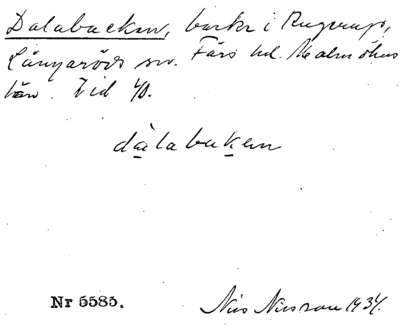 Dalabacken, backe i Rugerup,
Långaröds sn. Färs hd. Malmöhus
län. Vid 40.
dàlabaken
Nr 5585. Nils Nilsson 1934.